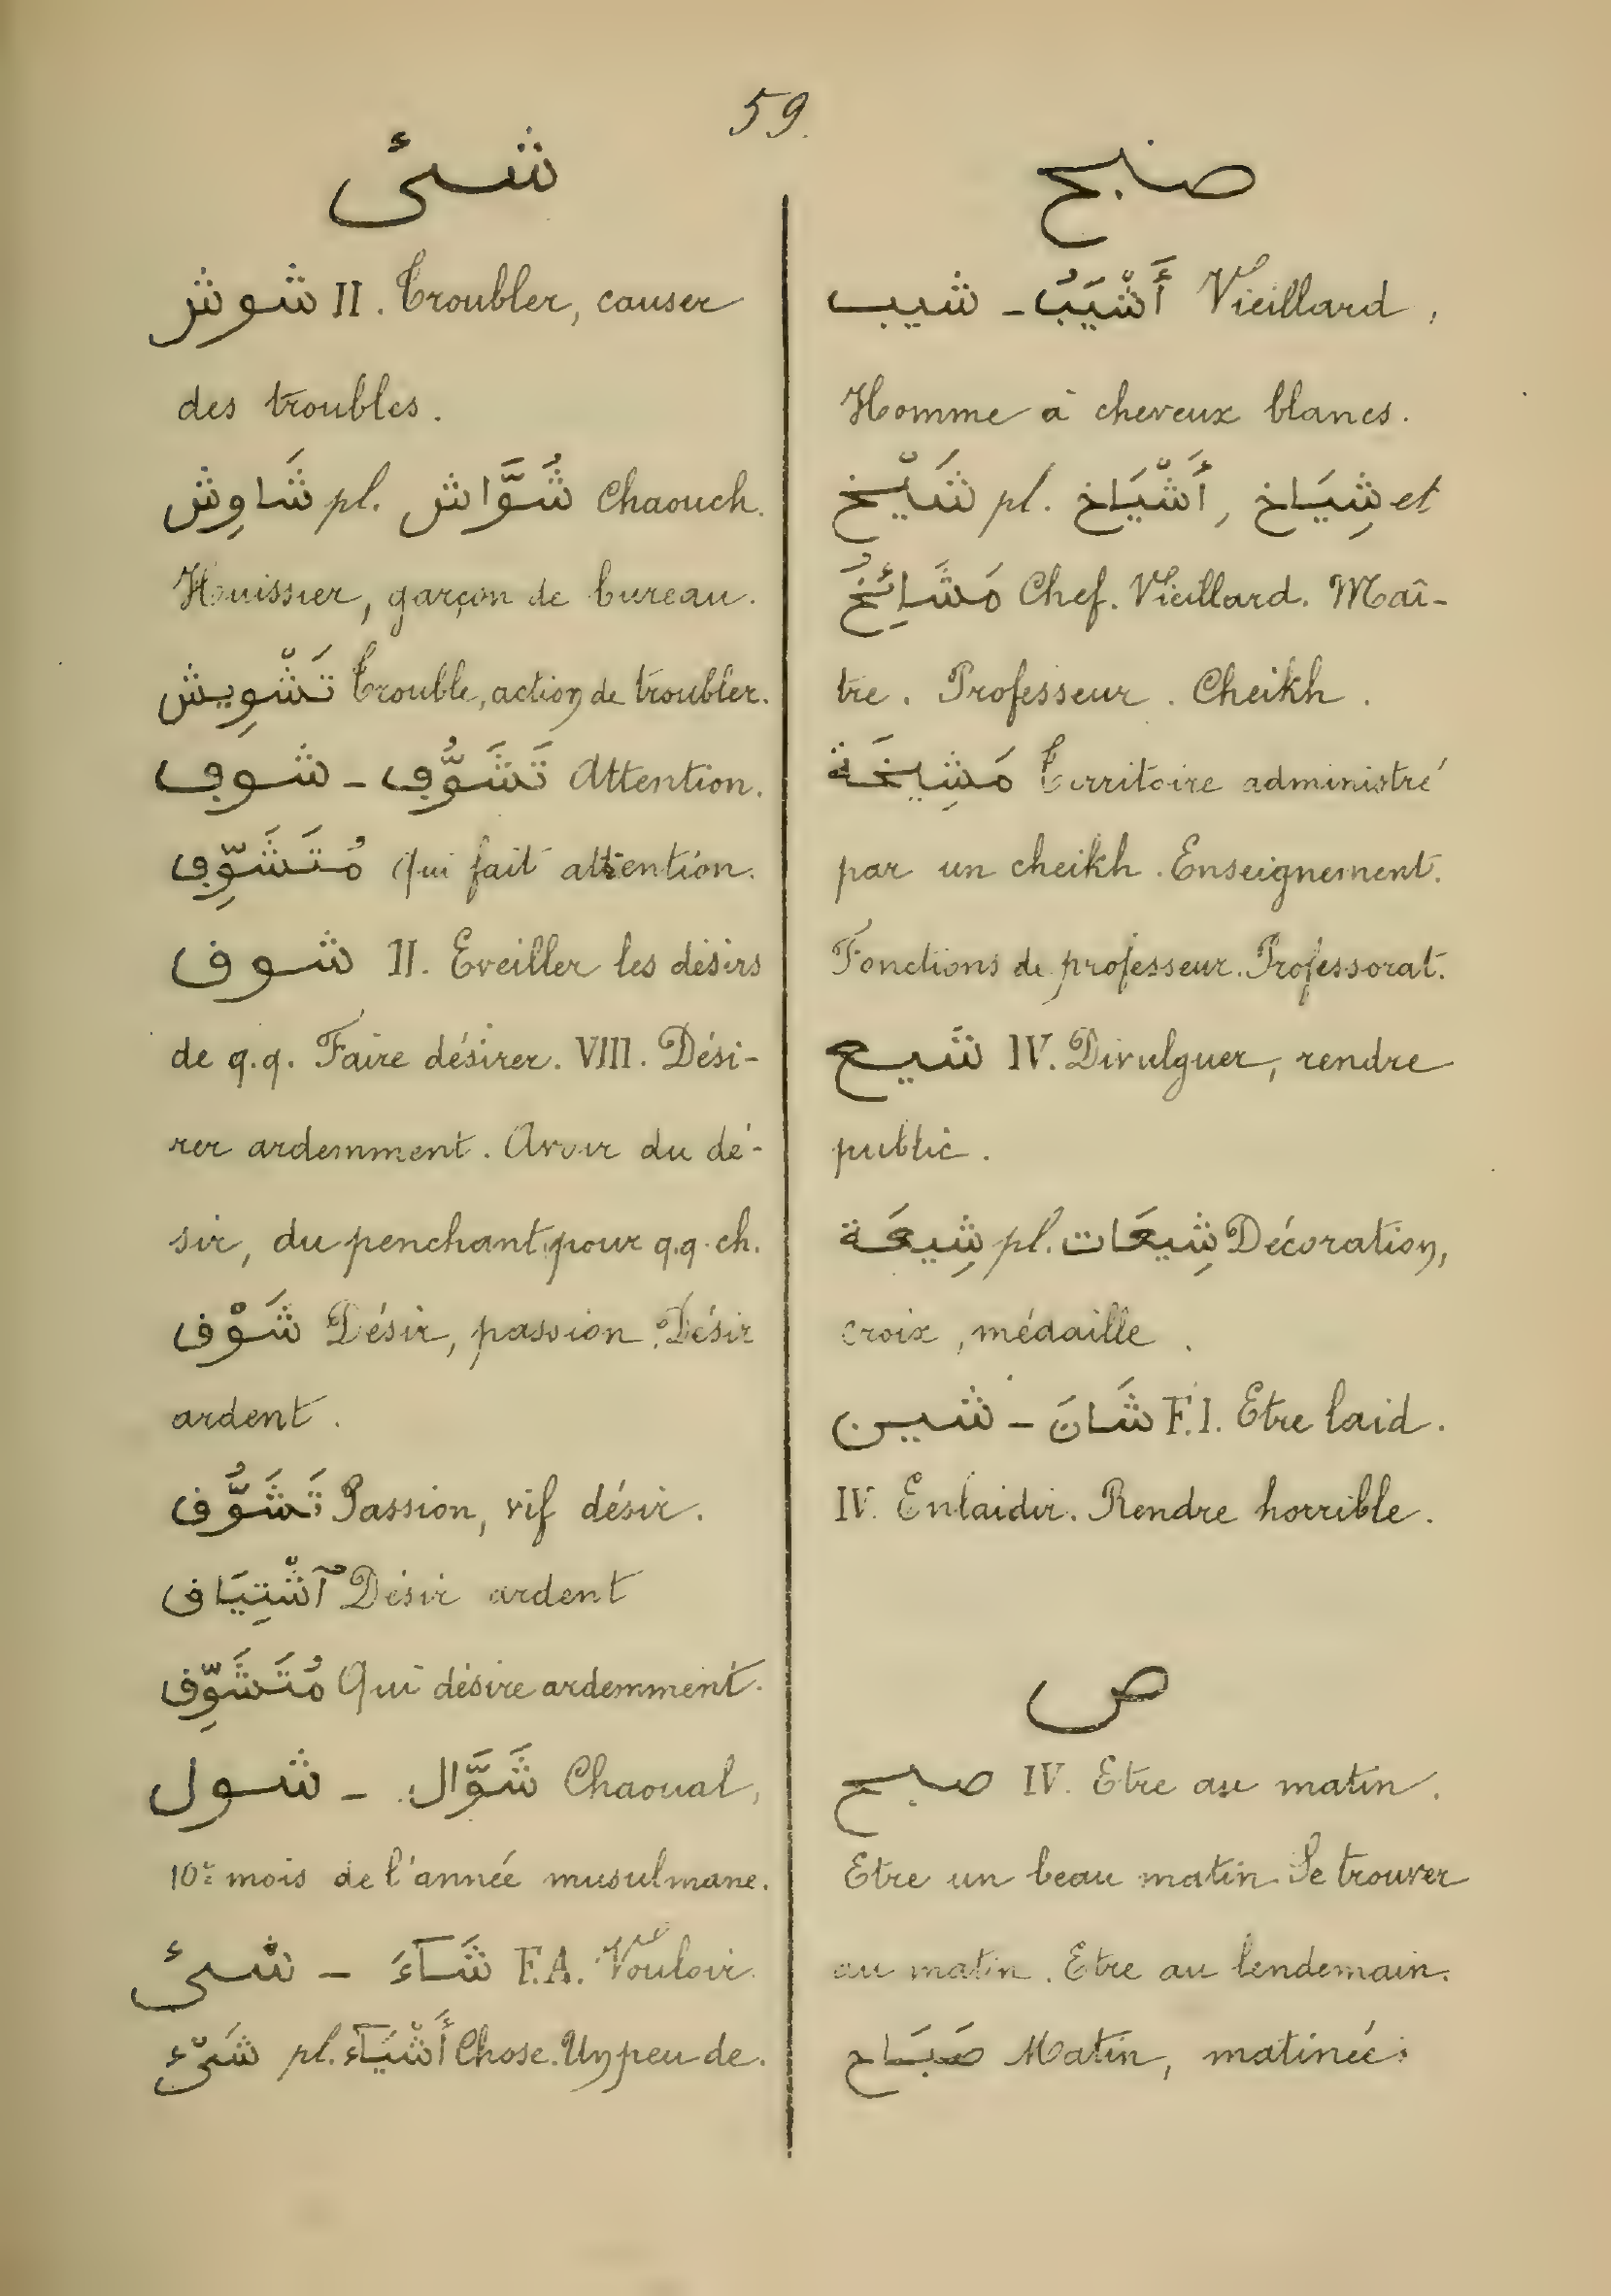 59.
شئ
شوش II. Troubler, causer
des troubles.
شَاوِش pl. شُوَّاش Chaouch.
Huissier, garçon de bureau.
تَشْوِيش Trouble, action de troubler.
شوڢ - تَشَوُّڢ Attention.
مُتَشَوِّڢ Qui fait attention.
شوڧ II. Eveiller les désirs
de q.q. Faire désirer. VIII. Dési-
rer ardemment. Avoir du dé-
sir, du penchant pour q.q. ch.
شَوْڧ Désir, passion. Désir
ardent.
تَشَوُّڧ Passion, vif désir.
آشْتِيَاڧ Désir ardent
مُتَشَوِّڧ Qui désire ardemment.
شول - شَوَّال Chaoual,
10e mois de l'année musulmane.
شىئ - شَآءَ F.A. Vouloir.
شَىْء pl. أَشْيَآء Chose. Un peu de.
صبح
شيب - أَشْيَبُ Vieillard,
Homme à cheveux blancs.
شَيْخ pl. أَشْيَاخ, شِيَاخ et
مَشَائِخُ Chef. Vieillard. Maî-
tre. Professeur. Cheikh.
مَشِيخَة Territoire administré
par un cheikh. Enseignement.
Fonctions de professeur. Professorat.
شيع IV. Divulguer, rendre
public.
شِيعَة pl. شِيعَات Décoration,
croix, médaille.
شين - شَانَ F.I. Etre laid.
IV. Enlaidir. Rendre horrible.
ص
صبح IV. Etre au matin.
Etre un beau matin. Se trouver
au matin. Etre au lendemain.
صَبَاح Matin, matinée.